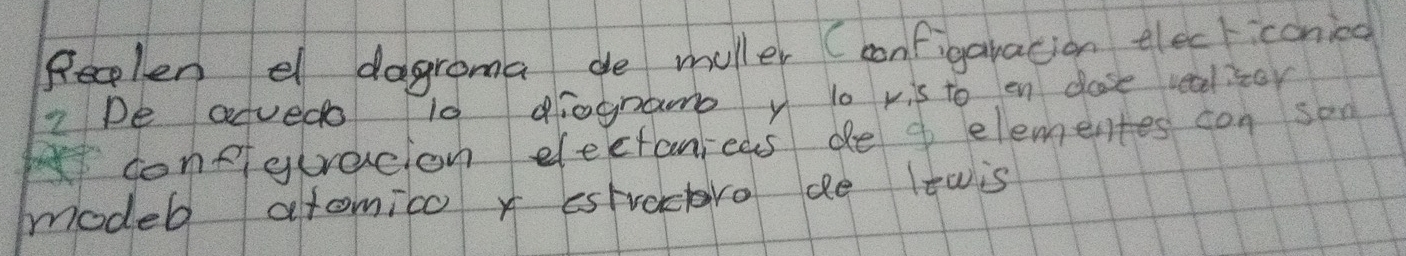 Realen el dagroma de muller (configaración electiconica
2 De acuedo lo diognamo y lo visto en clase realizar
configuracion electonicas de 9 elementes con son
modelo atomico y estroctoro de lewis